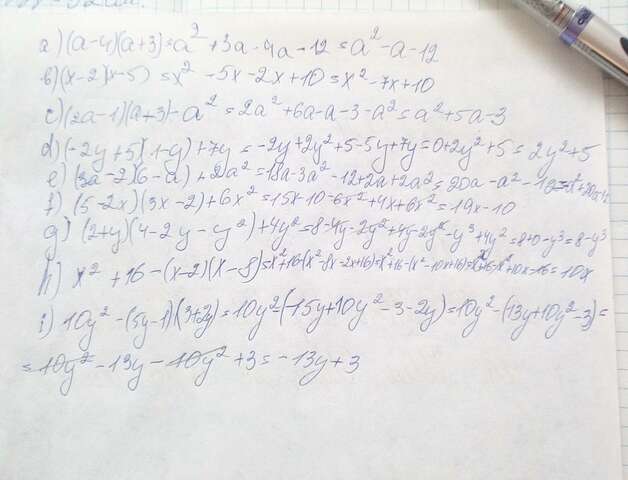 a) (a-4)(a+3)=a²+3a-4a-12=a²-a-12
b) (x-2)(x-5)=x²-5x-2x+10=x²-7x+10
c) (2a-1)(a+3)-a²=2a²+6a-a-3-a²=a²+5a-3
d) (-2y+5)(1-y)+7y=-2y+2y²+5-5y+7y=0+2y²+5=2y²+5
e) (3a-2)(6-a)+2a²=18a-3a²-12+2a+2a²=20a-a²-12=
f) (5-2x)(3x-2)+6x²=15x-10-6x²+4x+6x²=19x-10
g) (2+y)(4-2y-y²)+4y²=8-4y-2y²+4y-2y²-y³+4y²=8+0-y³=8-y³
h) x²+16-(x-2)(x-8)=x²+16-(x²-8x-2x+16)=x²+16-(x²-10x+16)=x²+16-x²+10x-16=10x
i) 10y²-(5y-1)(3+2y)=10y²-(15y+10y²-3-2y)=10y²-(13y+10y²-3)=
=10y²-13y-10y²+3=-13y+3